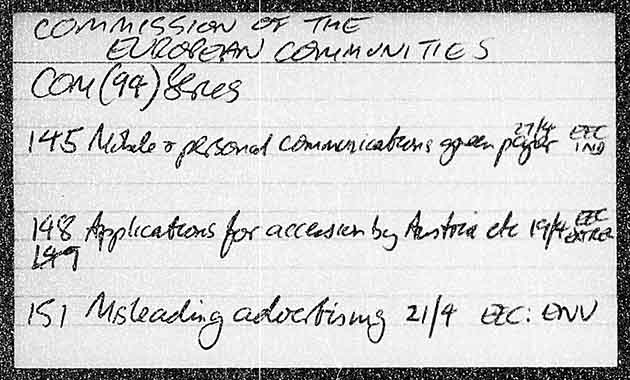 COMMISSION OF THE
EUROPEAN COMMUNITIES
COM(94) Series
145 Mobile & personal communications green paper 27/4 EEC IND
148 Applications for accession by Austria etc 19/4 EEC EXTREL
149
151 Misleading advertising 21/4 EEC: ENV